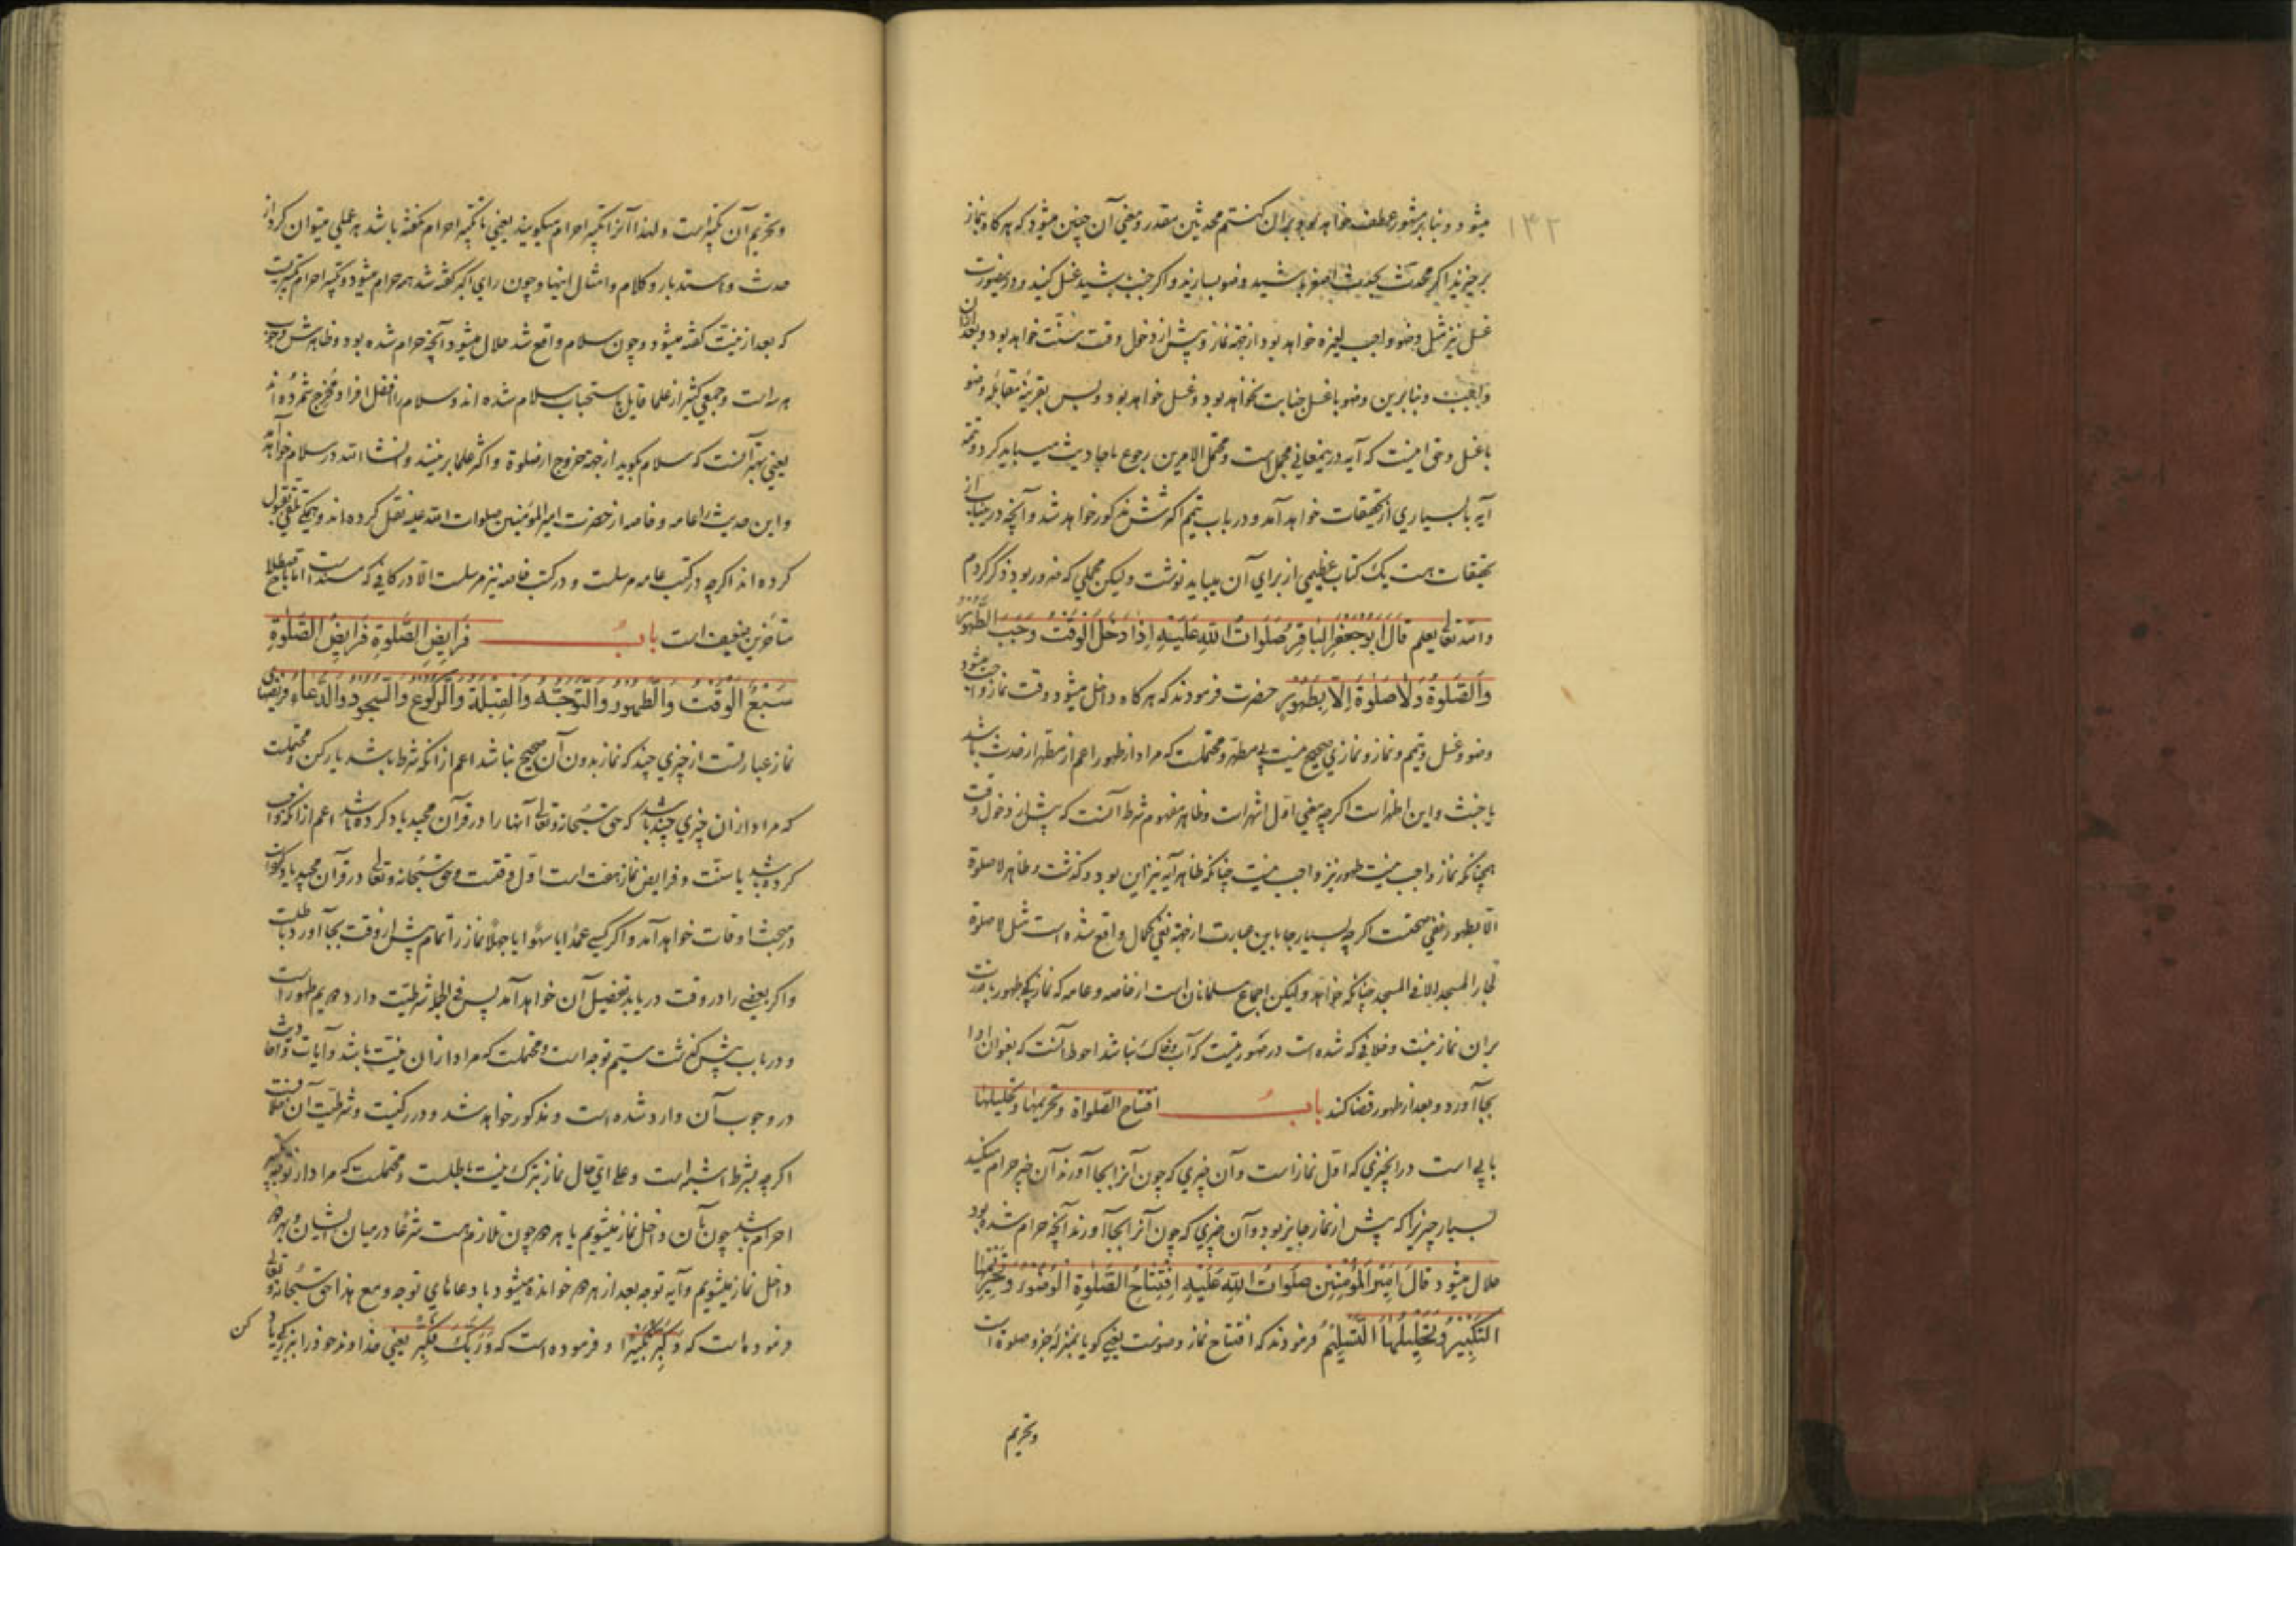 میشود و بنا بر مشهور عطف خواهد بود بر ان کنتم محدثین مقدر و معنی آن چنین میشود که هر کاه بنماز
برخیزید اگر محدث بحدث اصغر باشید وضو بسازید و اگر جنب باشید غسل کنید و درینصورت
غسل نیز مثل وضو واجب لغیره خواهد بود از جهة نماز و پیش از دخول وقت سنت خواهد بود و بعد ازان
واجب و بنابرین وضو با غسل جنابت نخواهد بود و غسل خواهد بود و بس بقرینهٔ مقابلهٔ وضو
با غسل و حق اینست که آیه درینمعانی مجمل است و محتمل الامرین رجوع باحادیث میباید کرد و تتمه
آیه با بسیاری از تحقیقات خواهد آمد و در باب تیمم اکثرش مذکور خواهد شد و آنچه درینباب از
تحقیقات هست یک کتاب عظیمی از برای آن میباید نوشت و لیکن مجملی که ضرور بود ذکر کردم
والله تعالی یعلم قَالَ اَبُو جَعْفَرٍ الْبَاقِرُ صَلَوَاتُ اللهِ عَلَیْهِ اِذَا دَخَلَ الْوَقْتُ وَجَبَ الطَّهُورُ
وَالصَّلٰوةُ وَلَا صَلٰوةَ اِلَّا بِطَهُورٍ حضرت فرمودند که هر کاه داخل میشود وقت نماز واجب میشود
وضو و غسل و تیمم و نماز و نمازی صحیح نیست بی مطهر و محتملست که مراد از طهور اعم از مطهر از حدث باشد
یا خبث و این اظهر است اگرچه معنی اول اشهر است و ظاهر مفهوم شرط آنست که پیش از دخول وقت
همچنانکه نماز واجب نیست طهور نیز واجب نیست چنانکه ظاهر آیه نیز این بود و گذشت و ظاهر لا صلوة
الا بطهور نفی صحتست اگرچه بسیار جا باین عبارت از جهة نفی کمال واقع شده است مثل لا صلوة
لجار المسجد الا فی المسجد چنانکه خواهد و لیکن اجماع مسلمانان است از خاصه و عامه که نماز بی طهور با قدرت
بران نماز نیست و خلافی که شده است در صورتیست که آب و خاک نباشد احوط آنست که بعنوان ادا
بجا آورد و بعد از طهور قضا کند بابُ افتتاح الصلواة و تحریمها و تحلیلها
بابی است در انچیزی که اول نماز است و آن چیزی که چون آنرا بجا آورند آن چیز حرام میکند
بسیار چیزیرا که پیش از نماز جایز بود و آن چیزی که چون آنرا بجا آورند آنچه حرام شده بود
حلال میشود قَالَ اَمِیرُ الْمُؤْمِنِینَ صَلَوَاتُ اللهِ عَلَیْهِ اِفْتِتَاحُ الصَّلٰوةِ الْوُضُوءُ وَتَحْرِیمُهَا
التَّکْبِیرُ وَتَحْلِیلُهَا التَّسْلِیمُ فرمودند که افتتاح نماز وضوست یعنی کویا بمنزلهٔ جزو صلوة است
وتحریم
۱۴۲
و تحریم آن تکبیر است و لهذا آنرا تکبیر احرام میکویند یعنی تا تکبیر احرام نکفته باشد هر عملی میتوان کرد از
حدث و استدبار و کلام و امثال اینها و چون رای اکبر کفته شد همه حرام میشود و تکبیر احرام تکبیریست
که بعد از نیت کفته میشود و چون سلام واقع شد حلال میشود آنچه حرام شده بود و ظاهرش وجوب
هر سه است و جمعی کثیر از علما قایل باستحباب سلام شده اند و سلام را افضل افراد مخرج شمرده اند
یعنی بهتر آنست که سلام بکوید از جهة خروج از صلوة و اکثر علما برینند و انشاء الله در سلام خواهد آمد
و این حدیث را عامه و خاصه از حضرت امیر المؤمنین صلوات الله علیه نقل کرده اند و همکی تلقی بقبول
کرده اند اگرچه در کتب عامه مرسلست و در کتب خاصه نیز مرسلست الا در کافی که مسند است اما باصطلاح
متأخرین ضعیف است بابُ فَرَایِضِ الصَّلٰوةِ فَرَایِضُ الصَّلٰوةِ
سَبْعٌ الْوَقْتُ وَالطَّهُورُ وَالتَّوَجُّهُ وَالْقِبْلَةُ وَالرُّکُوعُ وَالسُّجُودُ وَالدُّعَاءُ فریضهای
نماز عبارتست از چیزی چند که نماز بدون آن صحیح نباشد اعم از انکه شرط باشد یا رکن و محتملست
که مراد ازان چیزی چند باشد که حق سبحانه و تعالی آنها را در قرآن مجید یاد کرده باشد اعم از انکه واجب
کرده باشد یا سنت و فرایض نماز هفت است اول وقتست و حق سبحانه و تعالی در قرآن مجید یاد کرده است
در مبحث اوقات خواهد آمد و اکر کسی عمدا یا سهوا یا جهلا نماز را تمام پیش از وقت بجا آورد باطلست
و اکر بعضی را در وقت دریابد تفصیل آن خواهد آمد پس فی الجمله شرطیت دارد دویم طهور است
و در باب پیش گذشت سیم توجه است و محتملست که مراد ازان نیت باشد و آیات و احادیث
در وجوب آن وارد شده است و مذکور خواهد شد و در رکنیت و شرطیت آن خلافست
اگرچه بشرط اشبه است و علی ای حال نماز بترک نیت باطلست و محتملست که مراد از توجه تکبیر
احرام باشد چون بآن داخل نماز میشویم یا هر دو چون تلازم هست شرعا در میان ایشان و بهر دو
داخل نماز میشویم و آیه توجه بعد از هر دو خوانده میشود با دعاهای توجه و مع هذا حق سبحانه و تعالی
فرموده است که وَکَبِّرْهُ تَکْبِیرًا و فرموده است که وَرَبَّکَ فَکَبِّرْ یعنی خداوند خود را ببزرکی یاد
کن